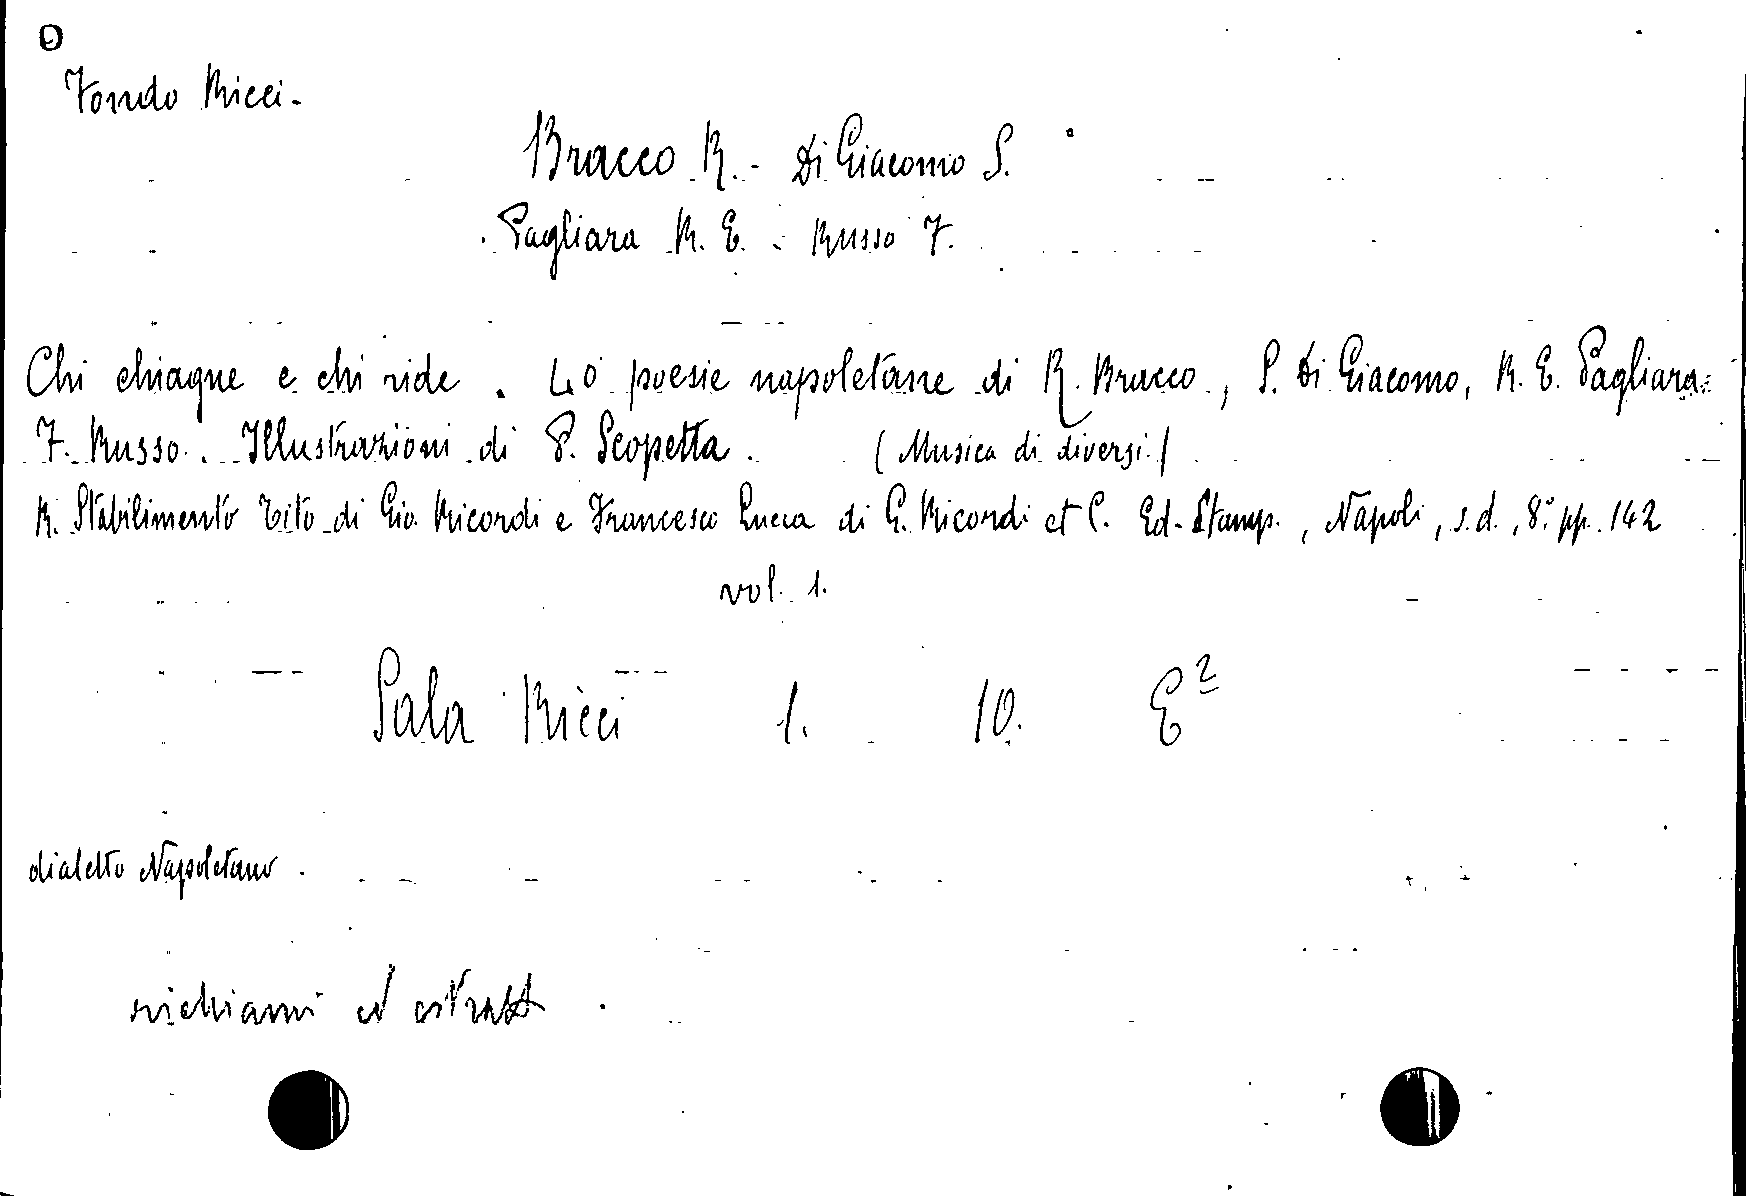 O
Fondo Ricci.
Bracco R. - Di Giacomo S.
Pagliara R. E. - Russo F.
Chi chiagne e chi ride. 40 poesie napoletane di R. Bracco, S. Di Giacomo, R. E. Pagliara
F. Russo. Illustrazioni di P. Scopetta. (Musica di diversi)
R. Stabilimento Tito di Gio. Ricordi e Francesco Lucca di G. Ricordi et C. Ed. Stamp., Napoli, s.d., 8° pp. 142
vol. 1.
Sala Ricci 1. 10. E²
dialetto Napoletano.
richiami ed estratti